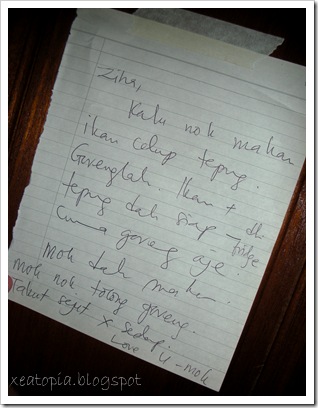 Ziha,
Kalu nok makan
ikan celup tepung.
Gorenglah. Ikan + 
tepung dah siap – dlm fridge
Cuma goreng aje.
Mok dah makan.
Mok nok tolong goreng.
Takut sejut x sedap.
Love u – mok
xeatopia.blogspot